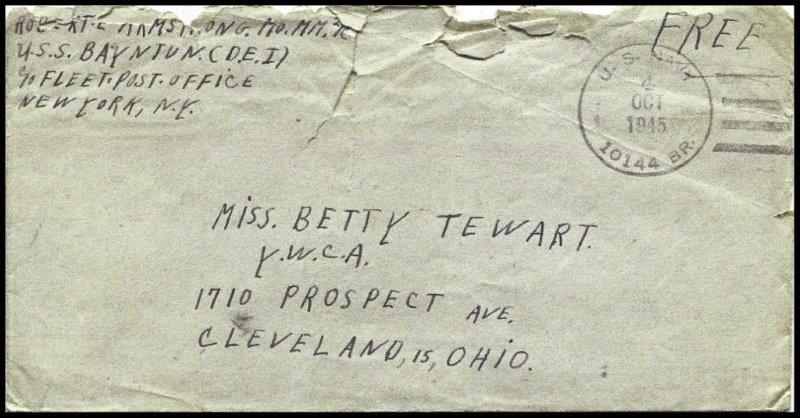 ROBERT L ARMSTRONG. MO.MM. 3/C
U.S.S. BAYNTUN. (D.E.1)
c/o FLEET. POST. OFFICE
NEW YORK, N.Y.
FREE
U.S. NAVY
4
OCT
1945
10144 BR.
MISS. BETTY TEWART.
Y.W.C.A.
1710 PROSPECT AVE.
CLEVELAND, 15, OHIO.